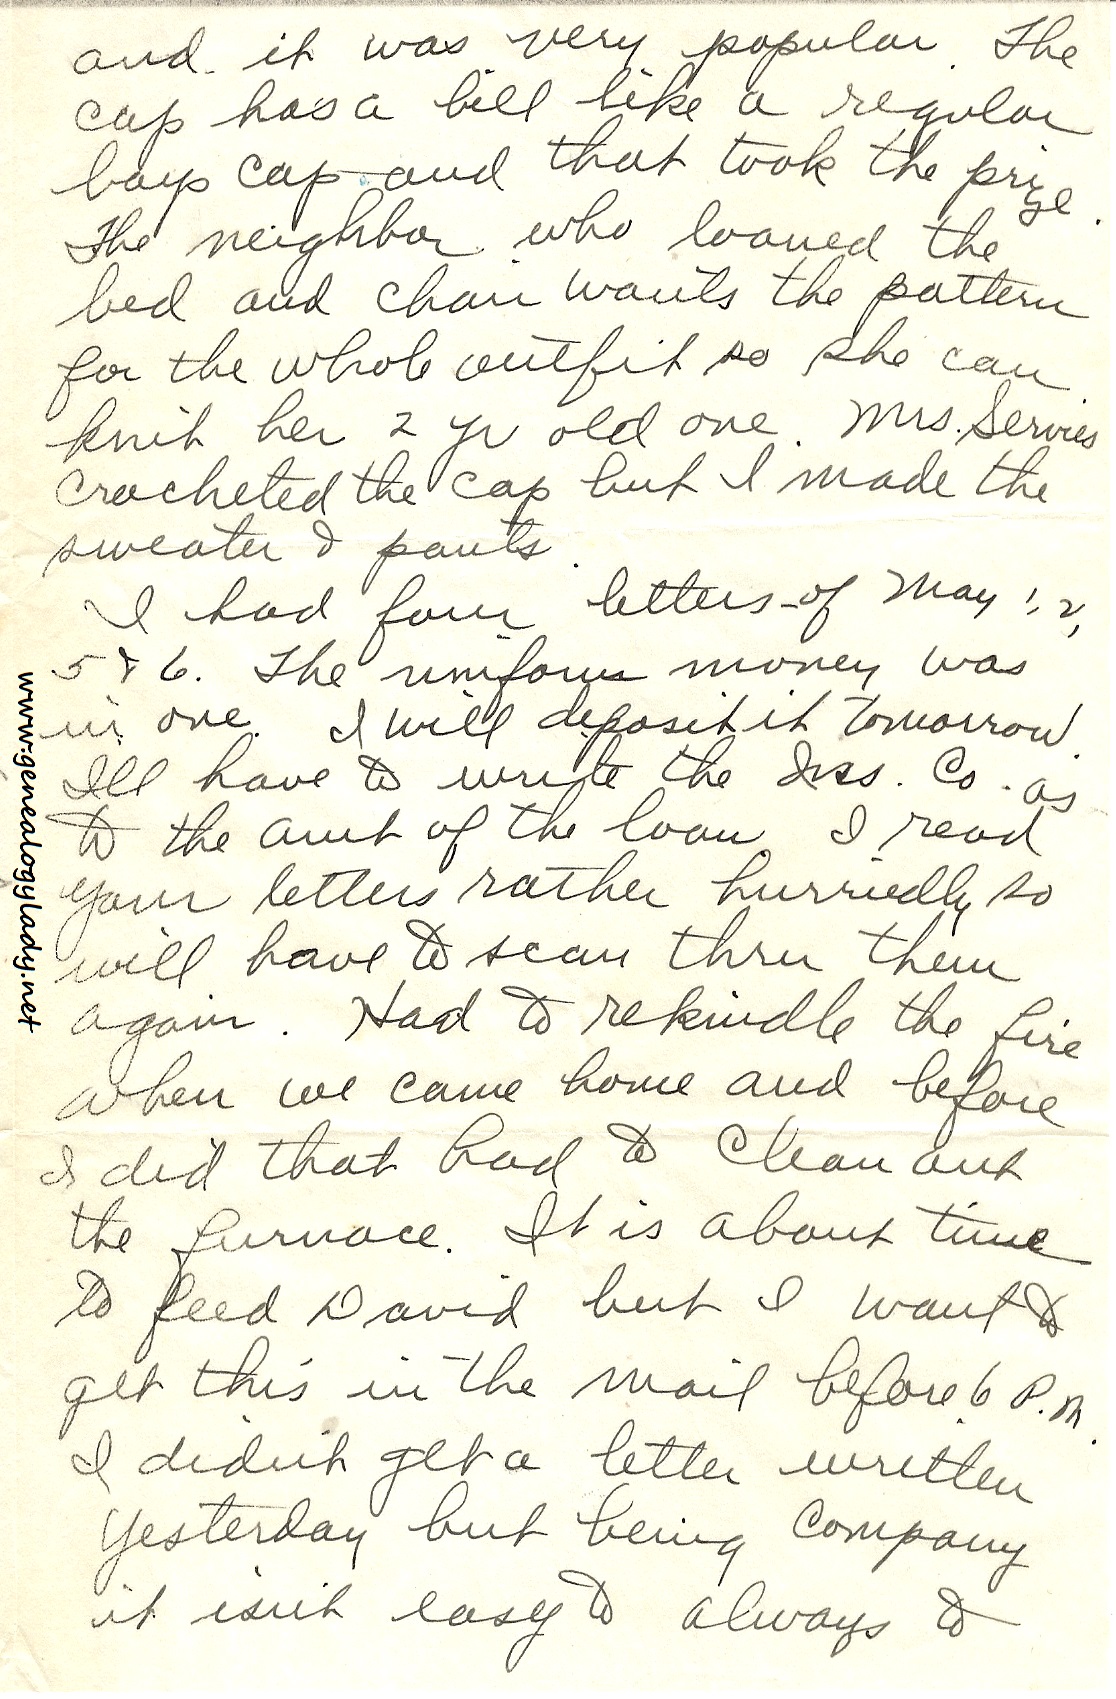 and it was very popular. The
cap has a bill like a regular
boys cap and that took the prize.
The neighbor who loaned the
bed and chair wants the pattern
for the whole outfit so she can
knit her 2 yr old one. Mrs. Servies
crocheted the cap but I made the
sweater & pants.
I had four letters of May 1, 2,
5 & 6. The uniform money was
in one. I will deposit it tomorrow.
Ill have to write the Inss. Co. as
to the amt of the loan. I read
your letters rather hurriedly so
will have to scan thru them
again. Had to rekindle the fire
when we came home and before
I did that had to clean out
the furnace. It is about time
to feed David but I want to
get this in the mail before 6 P.M.
I didn't get a letter written
yesterday but being company
it isn't easy to always to
www.genealogylady.net